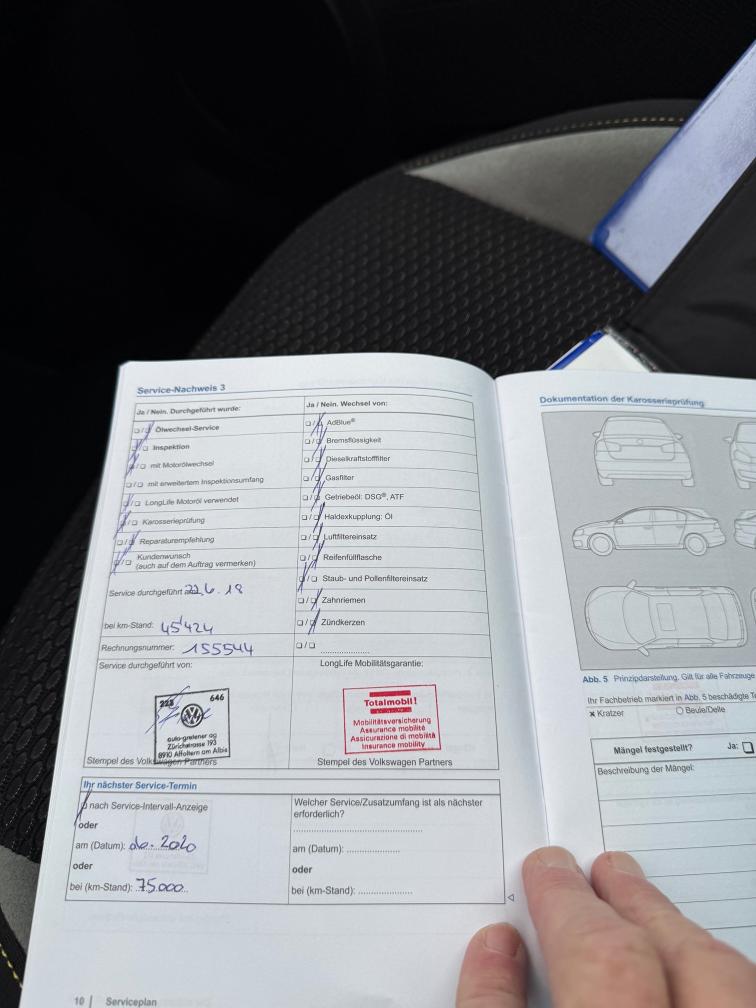 Service-Nachweis 3
Ja / Nein. Durchgeführt wurde:
❑/❑ Ölwechsel-Service
❑/❑ Inspektion
❑/❑ mit Motorölwechsel
❑/❑ mit erweitertem Inspektionsumfang
❑/❑ LongLife Motoröl verwendet
❑/❑ Karosserieprüfung
❑/❑ Reparaturempfehlung
❑/❑ Kundenwunsch
(auch auf dem Auftrag vermerken)
Service durchgeführt am: 22.6.18
bei km-Stand: 45'424
Rechnungsnummer: 155544
Service durchgeführt von:
646
auto-gretener ag
Zürichstrasse 193
8910 Affoltern am Albis
Stempel des Volkswagen Partners
Ja / Nein. Wechsel von:
❑/❑ AdBlue®
❑/❑ Bremsflüssigkeit
❑/❑ Dieselkraftstofffilter
❑/❑ Gasfilter
❑/❑ Getriebeöl: DSG®, ATF
❑/❑ Haldexkupplung: Öl
❑/❑ Luftfiltereinsatz
❑/❑ Reifenfüllflasche
❑/❑ Staub- und Pollenfiltereinsatz
❑/❑ Zahnriemen
❑/❑ Zündkerzen
❑/❑ ......................
LongLife Mobilitätsgarantie:
Totalmobil!
Mobilitätsversicherung
Assurance mobilité
Assicurazione di mobilità
Insurance mobility
Stempel des Volkswagen Partners
Ihr nächster Service-Termin
❑ nach Service-Intervall-Anzeige
oder
am (Datum): 06.2020
oder
bei (km-Stand): 75.000
Welcher Service/Zusatzumfang ist als nächster
erforderlich?
am (Datum): ....................
oder
bei (km-Stand): ....................
10 | Serviceplan
Dokumentation der Karosserieprüfung
Abb. 5 Prinzipdarstellung. Gilt für alle Fahrzeuge
Ihr Fachbetrieb markiert in Abb. 5 beschädigte
× Kratzer ○ Beule/Delle
Mängel festgestellt? Ja: ❑
Beschreibung der Mängel: